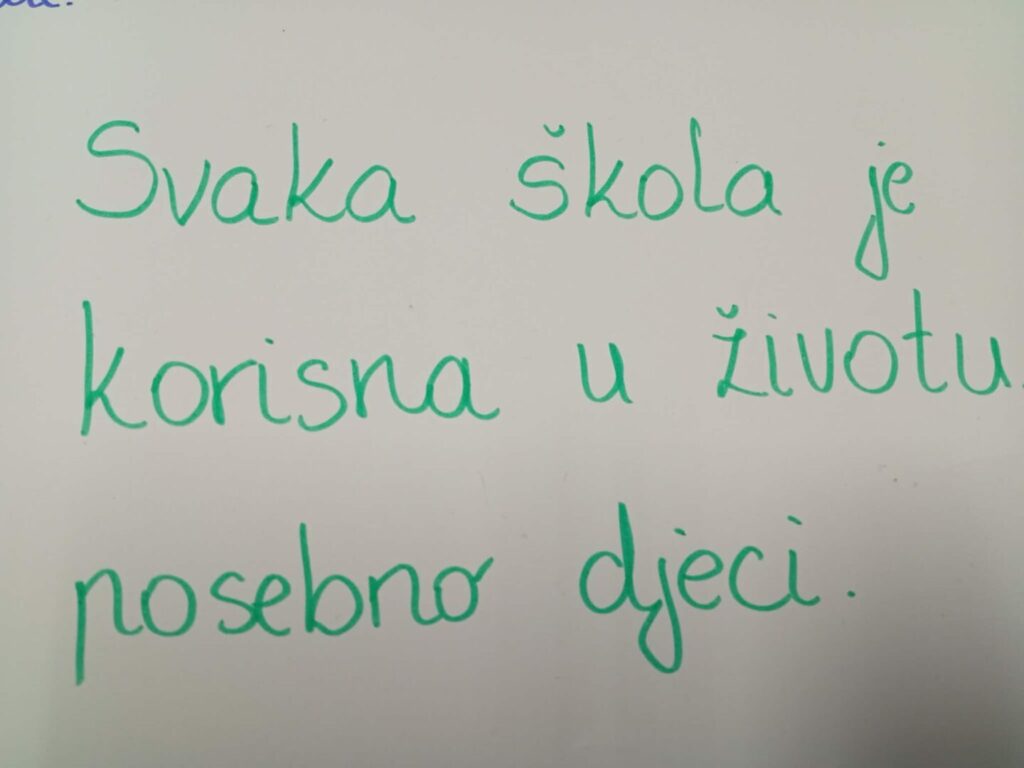 Svaka škola je
korisna u životu
posebno djeci.